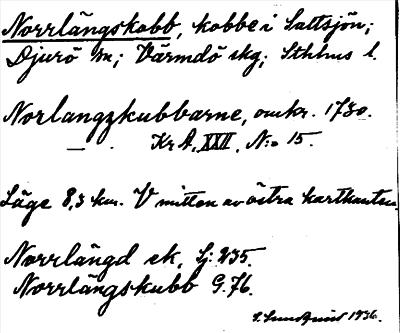 Norrlängskobb, kobbe i Saltsjön;
Djurö sn; Värmdö skg; Sthlms l.
Norlangzkubbarne, omkr. 1730.
— . Kr A, XXII, N:o 15.
Läge 8,3 km. V mitten av östra kartkanten.
Norrlängd ek, Sj: 235.
Norrlängskubb G. 76.
S. Sundquist 1936.